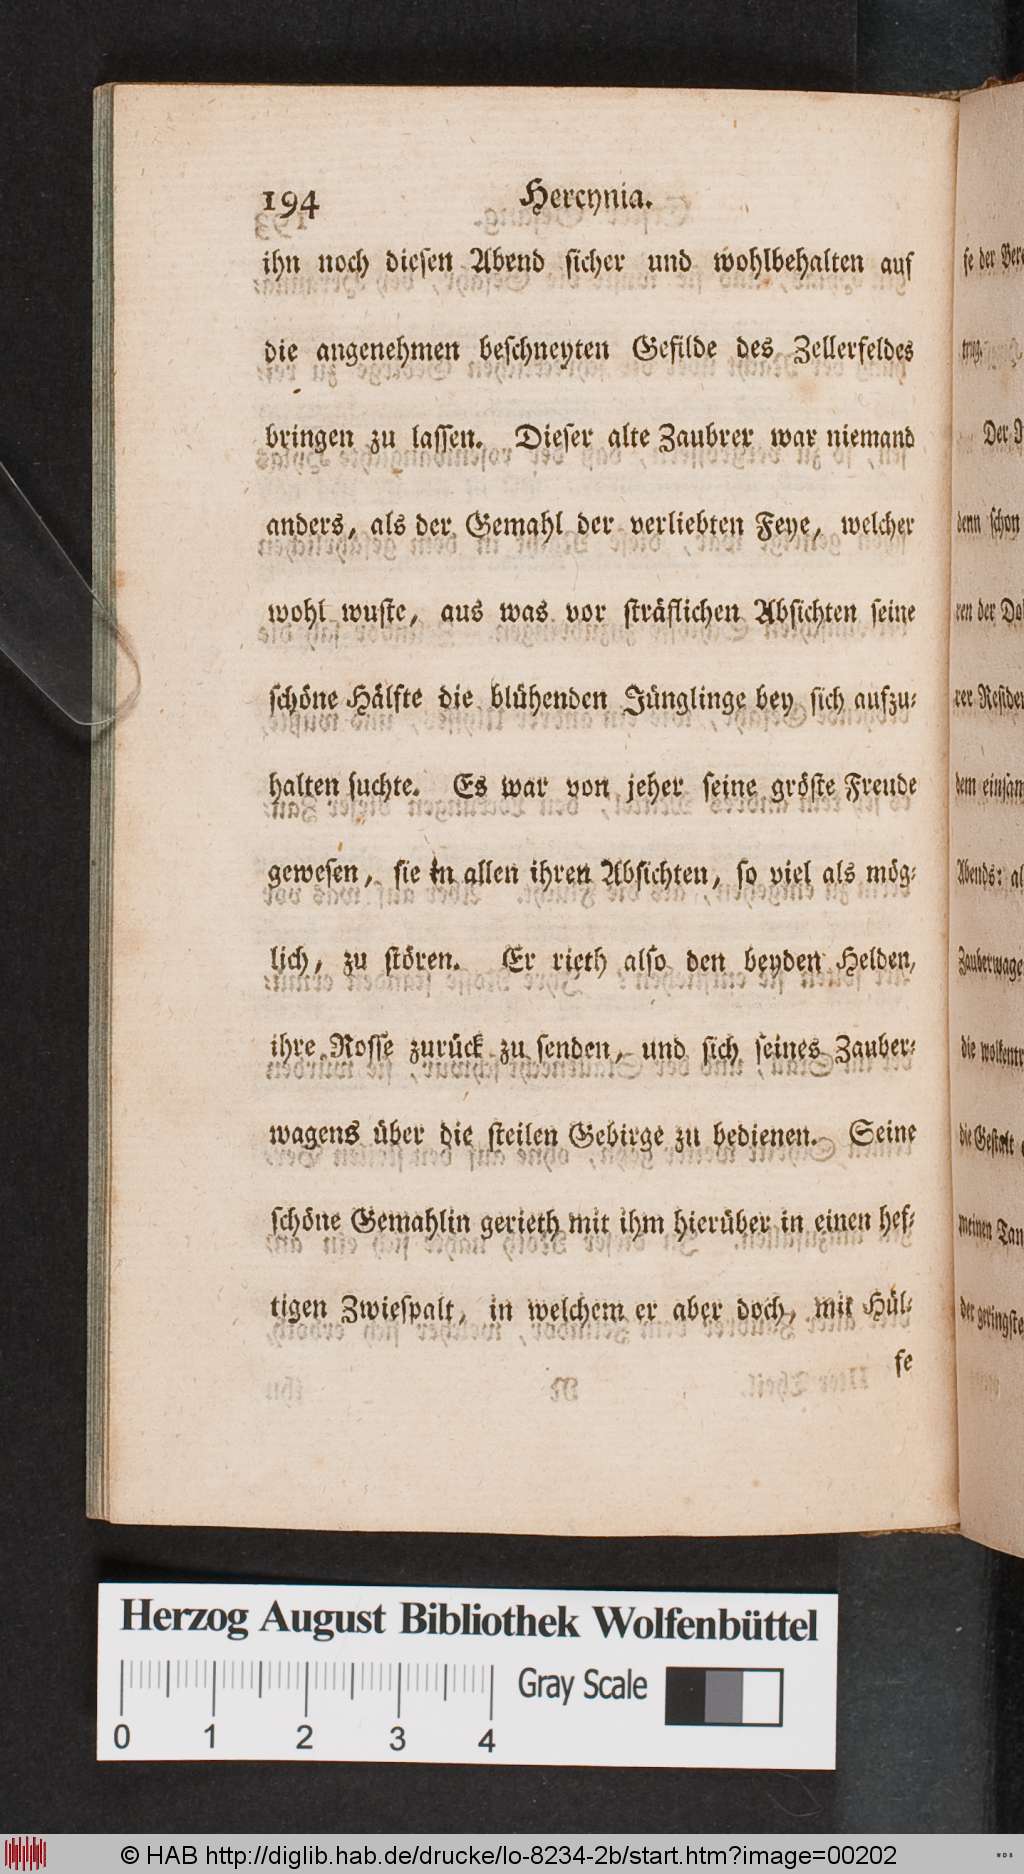 194 Hercynia.
ihn noch diesen Abend sicher und wohlbehalten auf
die angenehmen beschneyten Gefilde des Zellerfeldes
bringen zu lassen. Dieser alte Zaubrer war niemand
anders, als der Gemahl der verliebten Feye, welcher
wohl wuste, aus was vor sträflichen Absichten seine
schöne Hälfte die blühenden Jünglinge bey sich aufzu-
halten suchte. Es war von jeher seine gröste Freude
gewesen, sie in allen ihren Absichten, so viel als mög-
lich, zu stören. Er rieth also den beyden Helden,
ihre Rosse zurück zu senden, und sich seines Zauber-
wagens über die steilen Gebirge zu bedienen. Seine
schöne Gemahlin gerieth mit ihm hierüber in einen hef-
tigen Zwiespalt, in welchem er aber doch, mit Hül-
fe
se der
trug.
Der
denn schon
ren der
rer
dem
Abends: al
Zauberwage
die
die Gestalt
meinen Tan
der geringste
Herzog August Bibliothek Wolfenbüttel
Gray Scale
0 1 2 3 4
© HAB http://diglib.hab.de/drucke/lo-8234-2b/start.htm?image=00202